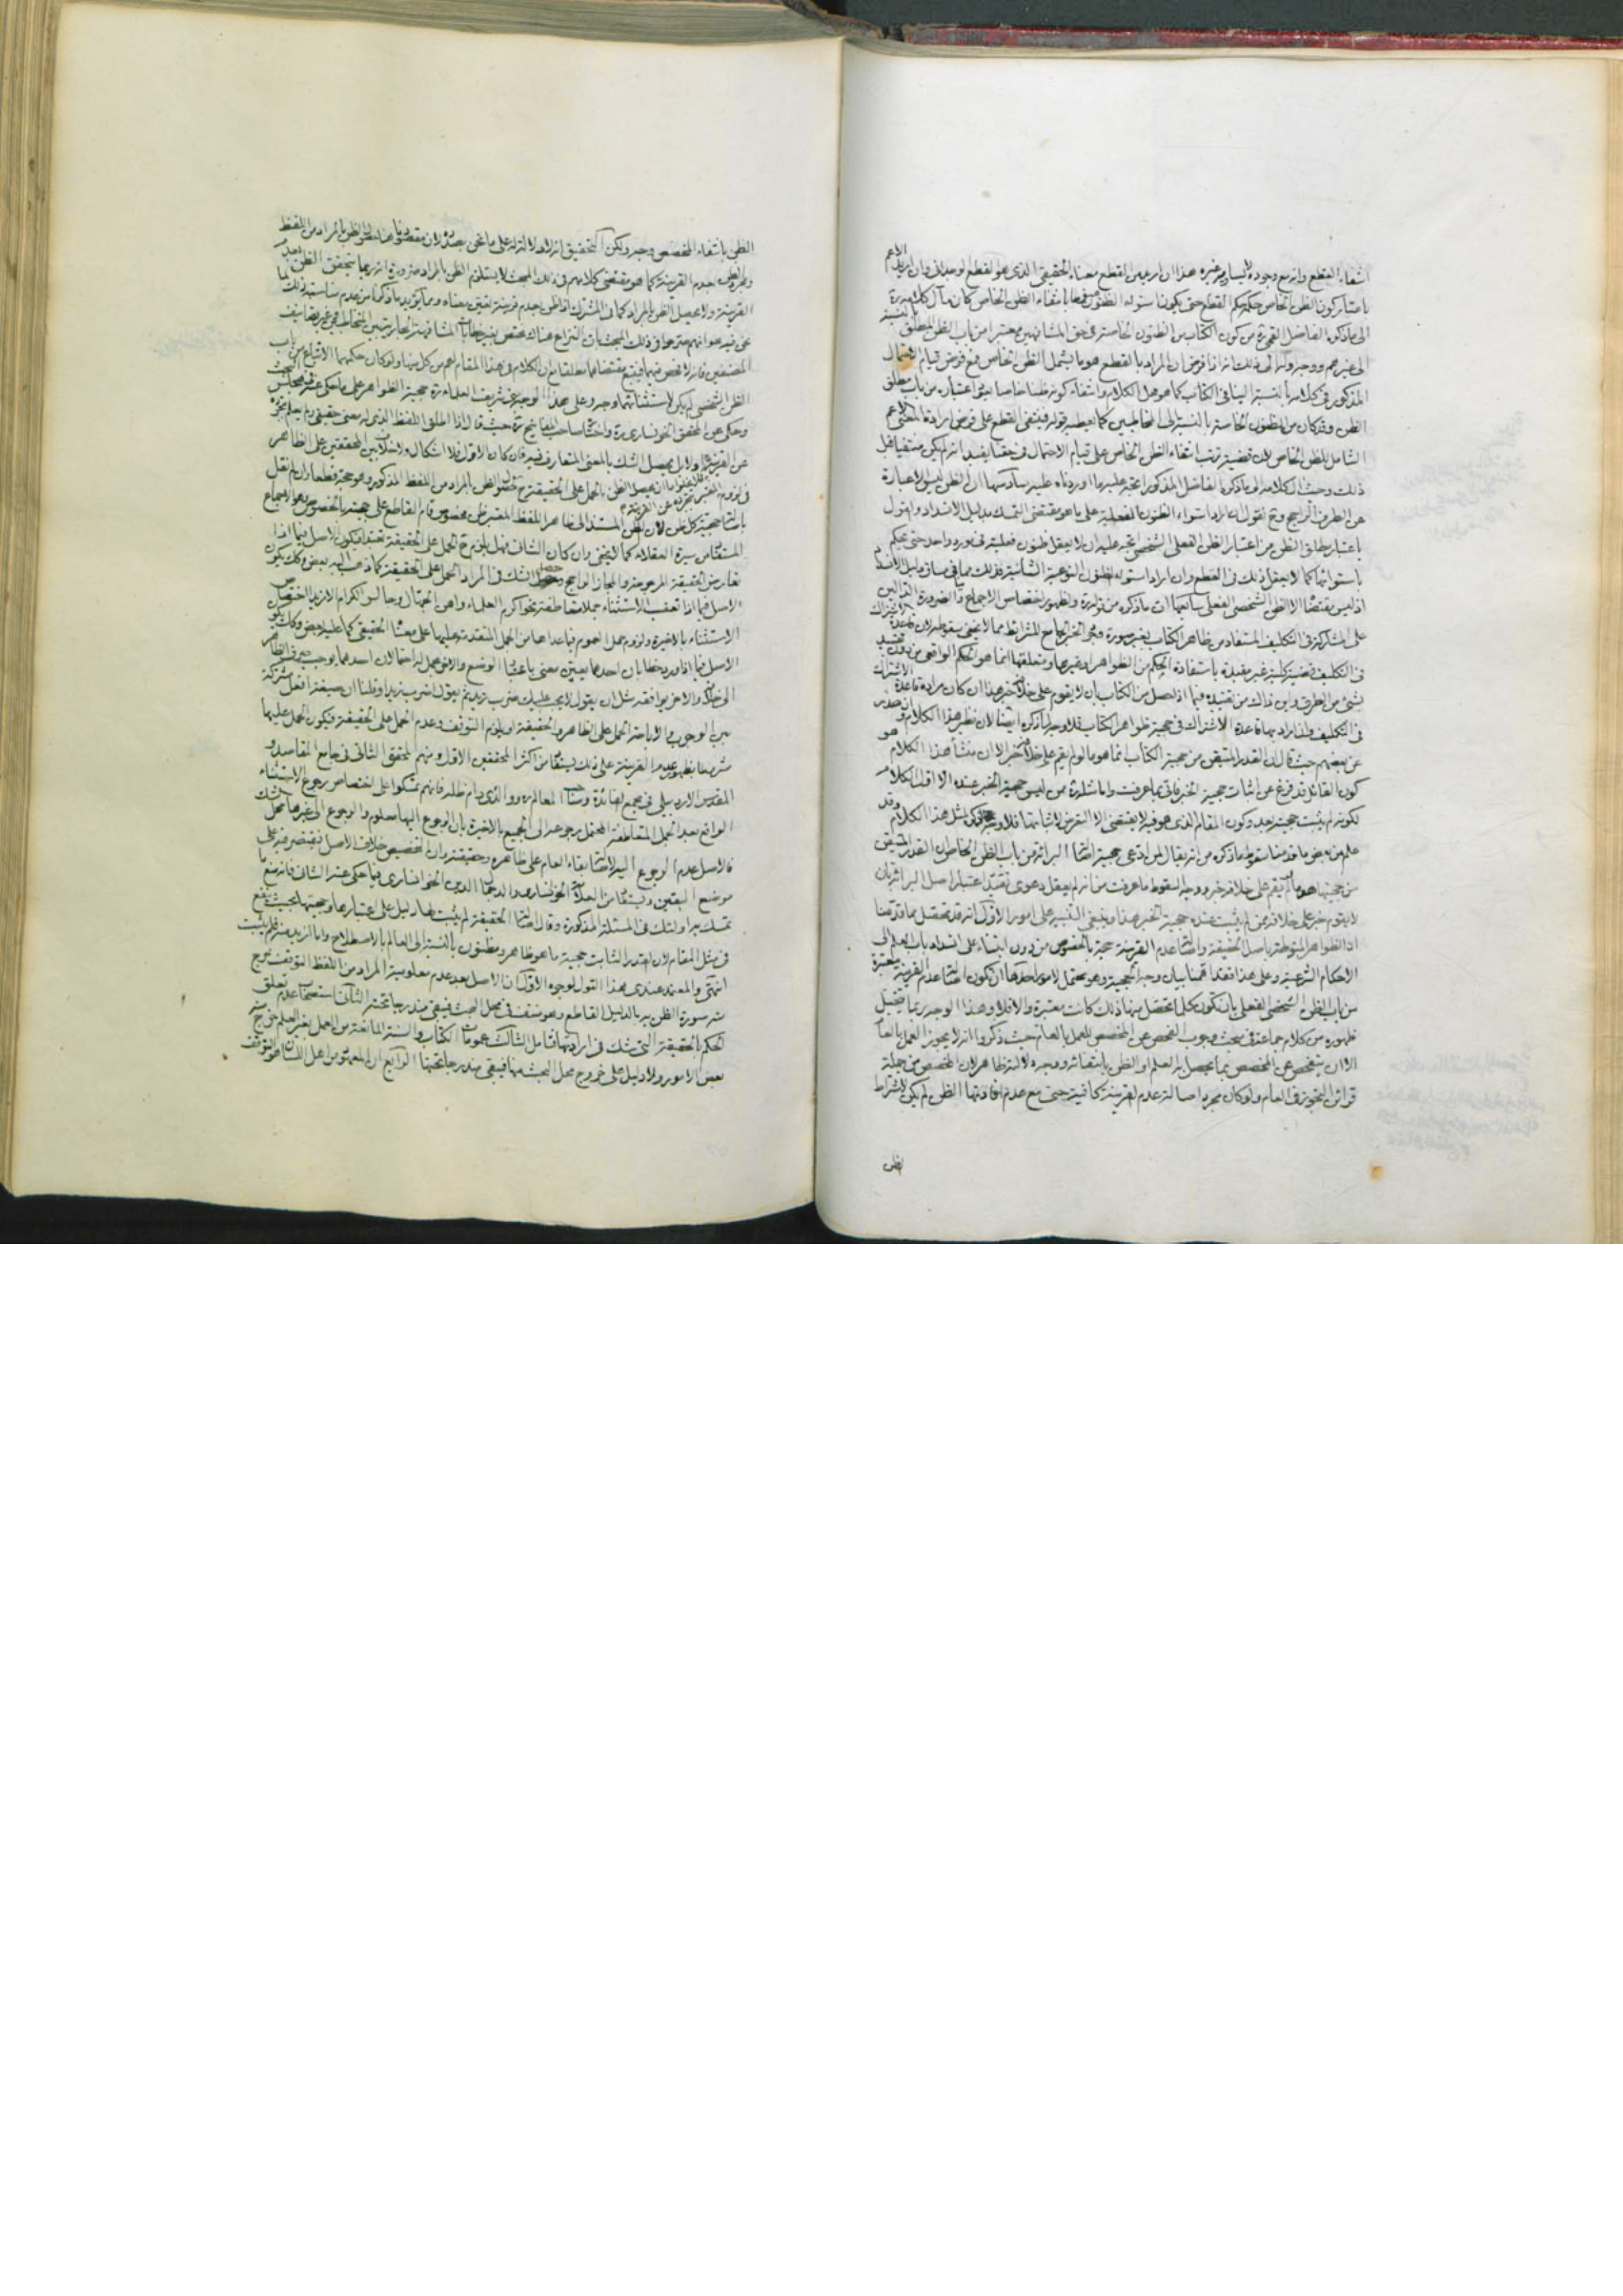 انتفاء القطع وانه مع وجوده لا يساويه غيره هذا ان اريد من القطع معناه الحقيقي الذي هو القطع الوجداني وان اريد الاعم
باعتبار كون الظن الخاص حكمه حكم القطع حتى يكون استواء الظنون بانتفاء الظن الخاص كان مآل كلامه
الى ما ذكره الفاضل القمي ره من كون الكتاب من الظنون الخاصة في حق المشافهين معتبرا من باب الظن المطلق بالنسبة
الى غيرهم ووجه انه اذا فرض ان المراد بالقطع هو ما يشمل الظن الخاص فمع فرض قيام الاحتمال
المذكور في كلامه بالنسبة الينا في الكتاب كما هو محل الكلام وانتفاء كونه ظنا خاصا يبقى اعتباره من باب مطلق
الظن وقد كان من الظنون الخاصة بالنسبة الى المخاطبين كما يعطيه قوله فينتفى القطع على فرض ارادة المعنى الاعم
الشامل للظن الخاص لان قضية ترتب انتفاء الظن الخاص على قيام الاحتمال في حقنا يفيد انه لم يكن منتفيا قبل
ذلك وحيث ان كلامه الى ما ذكره الفاضل المذكور اتجه عليه ما اوردناه عليه سآدسها ان الظن ليس الا عبارة
عن الطرف الراجح وح نقول انه اراد استواء الظنون الفعلية على ما هو مقتضى التمسك بدليل الانسداد والقول
باعتبار مطلق الظن من اعتبار الظن الفعلي الشخصي اتجه عليه ان لا يعقل ظنون فعلية في مورد واحد حتى يحكم
باستوائها كما لا يعقل ذلك في القطع وان اراد استواء الظنون النوعية الشأنية فذلك مما ينافى دليل الانسداد
اذ ليس مقتضاه الا الظن الشخصي الفعلي سابعها ان ما ذكره من ظهور اختصاص الاجماع والضرورة الدالين
على المشاركة في التكليف المستفاد من ظاهر الكتاب بغير صورة وجود الخبر الجامع للشرائط مما لا يخفى سقوطه لان قاعدة الاشتراك
في التكليف قضية كلية غير مقيدة باستفادة الحكم من الظواهر او غيرها ومتعلقها انما هو الحكم الواقعي من دون تقييد
بشيء من الطرق واين ذلك من تقييده فيما اذا حصل من الكتاب بان لا يقوم على خلافه خبر هذا ان كان مراده قاعدة الاشتراك
في التكليف وان اراد بها قاعدة الاشتراك في حجية ظواهر الكتاب فلا وجه لما ذكره ايضا لان نظير هذا الكلام قد صدر
عن بعضهم حيث قال ان القدر المتيقن من حجية الكتاب انما هو ما لو لم يقم على خلافه خبر الا ان منشأ هذا الكلام هو
كون القائل قد فرغ عن اثبات حجية الخبر فاتى بما عرفت واما مثله ره ممن ليس حجية الخبر عنده الا اول الكلام
لكونه لم يثبت حجيته بعد وكون المقام الذي هو فيه لا يقتضى الا التعرض لاثباتها فلا وجه لذكر مثل هذا الكلام وقد
علم من بعض ما قدمنا سقوط ما ذكره من انه يقال لمن ادعى حجية اصالة البرائة من باب الظن الخاص ان القدر المتيقن
من حجيتها هو ما لم يقم على خلافه خبر ووجه السقوط ما عرفت من انه لم يعقل دعوى تقييد اعتبار اصل البرائة بان
لا يقوم خبر على خلافه ممن لم يثبت عنده حجية الخبر هذا وينبغي التنبيه على امور الاول انه قد تحصل بما قدمنا
ان الظواهر المنوطة باصل الحقيقة واصالة عدم القرينة حجة بالخصوص من دون ابتناء على انسداد باب العلم الى
الاحكام الشرعية وعلى هذا فقد اهمنا بيان وجه الحجية وهو محتمل لامور احدها ان تكون اصالة عدم القرينة معتبرة
من باب الظن الشخصي الفعلي بان تكون كلما تحصل منها ذلك كانت معتبرة والا فلا وهذا الوجه ربما يتخيل
ظهوره من كلام جماعة في مبحث وجوب الفحص عن المخصص للعمل بالعام حيث ذكروا انه لا يجوز العمل بالعام
الا ان يتفحص عن المخصص بما يحصل به العلم او الظن بانتفائه ووجه دلالته ظاهر لان المخصص من جملة
قرائن التجوز في العام ولو كان مجرد اصالة عدم القرينة كافية حتى مع عدم افادتها الظن لم يكن لاشتراط
الظن
الظن بانتفاء المخصص وجه ولكن التحقيق انه لا دلالة له على ما نحن بصدده لان مقصودنا هنا حصول الظن بالمراد من اللفظ
ومجرد الظن بعدم القرينة كما هو مقتضى كلامهم في ذلك المبحث لا يستلزم الظن بالمراد ضرورة انه ربما يتحقق الظن بعدم
القرينة ولا يحصل الظن بالمراد كما في المشترك اذا ظن بعدم قرينة تعين معناه ومما يؤيد ما ذكرنا من عدم مناسبة ذلك لما
نحن فيه هو انهم صرحوا في ذلك المبحث بان النزاع هناك مختص بغير خطابات المشافهة الجارية بين المتخاطبين في غير تصانيف
المصنفين فانه لا فحص فيها فيتبع مقتضاها مطلقا مع ان الكلام في هذا المقام اعم من كل منها ولو كان حكمهما الاتباع من باب
الظن الشخصي لم يكن لاستثنائهما وجه وعلى هذا الوجه جرى شريف العلماء ره حجية الظواهر على ما حكى عنه في مجلس البحث
وحكى عن المحقق الخونساري ره واختاره صاحب المفاتيح ره حيث قال اذا اطلق اللفظ الذي له معنى حقيقي ولم يعلم تجرده
عن القرينة او لا بل يحصل الشك بالمعنى المتعارف فيه فان كان الاول فلا اشكال ولا خلاف بين المحققين على الظاهر
في لزوم الحمل على الحقيقة ح لحصول الظن بالمراد من اللفظ المذكور وهو حجة قطعا وان لم نقل
باصالة حجية كل ظن لان الظن المستند الى ظاهر اللفظ المعتبر ظن مخصوص قام القاطع على حجيته بالخصوص وهو الاجماع
المستفاد من سيرة العقلاء كما لا يخفى وان كان الثاني فهل يلزم ح الحمل على الحقيقة تعبدا فيكون الاصل فيما اذا
تعارض الحقيقة المرجوحة والمجاز الراجح وحصل الشك في المراد الحمل على الحقيقة كما ذهب اليه بعض وكذلك يكون
الاصل فيما اذا تعقب الاستثناء جملا متعاطفة نحو اكرم العلماء واهن الجهال وجالس الكرام الا زيدا اختصاص
الاستثناء بالاخيرة ولزوم حمل العموم فيما عداها من الجمل المتقدمة عليها على معناه الحقيقي كما عليه بعض وكذلك يكون
الاصل فيما اذا ورد خطابان احدهما يبين معنى باعتبار الوضع والاخر مجمل له احتمالان احدهما يوجب صرف الظاهر
الى خلافه والاخر يوافقه مثل ان يقول لا يجب عليك ضرب زيد ثم يقول اضرب زيدا وقلنا ان صيغة افعل مشتركة
بين الوجوب والاباحة الحمل على الظاهر والحقيقة او يلزم التوقف وعدم الحمل على الحقيقة فيكون الحمل عليها
مشروطا بظهور عدم القرينة على ذلك يستفاد من اكثر المحققين الاول ومنهم المحقق الثاني في جامع المقاصد و
المقدس الاردبيلي في مجمع الفائدة وصاحب المعالم ره ووالدي دام ظله فانهم تمسكوا على اختصاص رجوع الاستثناء
الواقع بعد الجمل المتعاطفة المحتمل رجوعه الى الجميع بالاخيرة بان الرجوع اليها معلوم والرجوع الى غيرها محل شك
فالاصل عدم الرجوع اليه لاصالة بقاء العام على ظاهره وحقيقته وان التخصيص خلاف الاصل فيقتصر فيه على
موضع اليقين ويستفاد من العلامة الخونساري والد جمال الدين الخوانساري فيما حكى عنه الثاني فانه منع
تمسك به اولئك في المسئلة المذكورة وقال اصالة الحقيقة لم يثبت لها دليل على اعتبارها وحجيتها بحيث ينفع
في مثل المقام لان القدر الثابت حجية ما هو ظاهر ومظنون بالنسبة الى العالم بالاصطلاح واما الزيد منه فلم يثبت
انتهى والمعتمد عندي هذا القول لوجوه الاول ان الاصل بعد عدم معلومية المراد من اللفظ التوقف خرج
منه صورة الظن به بالدليل القاطع وهو منتف في محل البحث فيبقى مندرجا تحته الثاني استصحاب عدم تعلق
الحكم بالحقيقة التي شك في ارادتها فتامل الثالث عموم الكتاب والسنة المانعة من العمل بغير العلم خرج منه
بعض الامور ولا دليل على خروج محل البحث منها فيبقى مندرجا تحتها الرابع ان المعهود من اهل اللسان هو التوقف